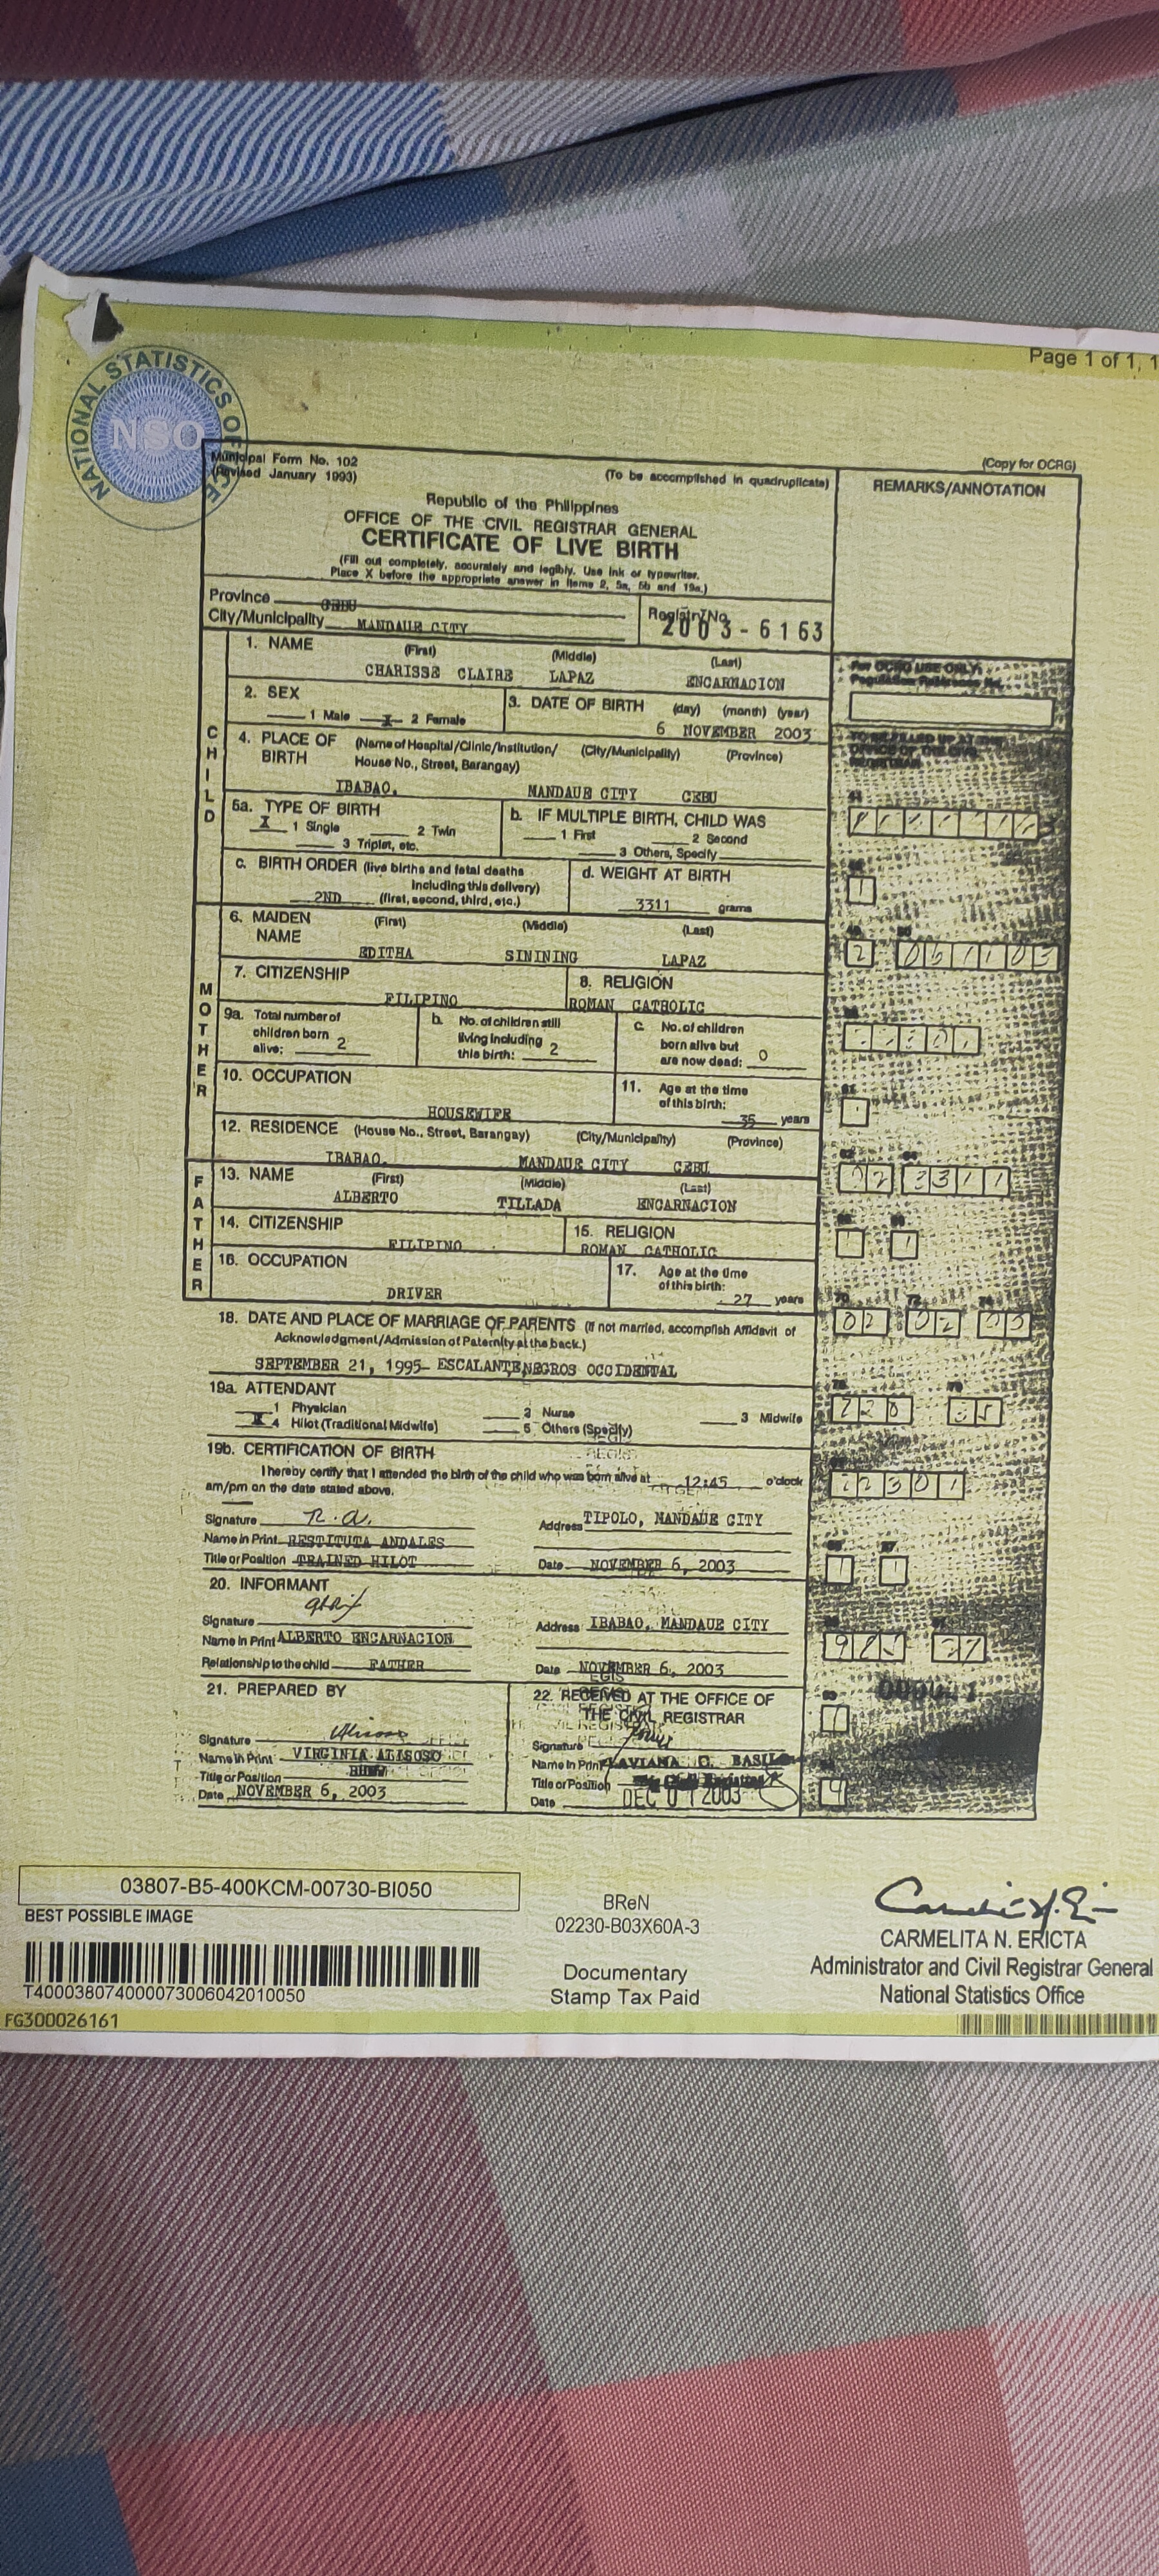 Page 1 of 1, 1
NATIONAL STATISTICS OFFICE
NSO
Municipal Form No. 102
(Revised January 1993)
(To be accomplished in quadruplicate)
(Copy for OCRG)
REMARKS/ANNOTATION
Republic of the Philippines
OFFICE OF THE CIVIL REGISTRAR GENERAL
CERTIFICATE OF LIVE BIRTH
(Fill out completely, accurately and legibly. Use ink or typewriter.
Place X before the appropriate answer in Items 2, 5a, 5b and 19a.)
Province CEBU
City/Municipality MANDAUE CITY
Registry No.
2003-6163
CHILD
1. NAME (First) (Middle) (Last)
CHARISSE CLAIRE LAPAZ ENCARNACION
For OCRG USE ONLY:
Population Reference No.
2. SEX
1 Male X 2 Female
3. DATE OF BIRTH (day) (month) (year)
6 NOVEMBER 2003
4. PLACE OF BIRTH (Name of Hospital/Clinic/Institution/ (City/Municipality) (Province)
House No., Street, Barangay)
IBABAO, MANDAUE CITY CEBU
TO BE FILLED UP AT THE
OFFICE OF THE CIVIL
REGISTRAR
5a. TYPE OF BIRTH
X 1 Single 2 Twin
3 Triplet, etc.
b. IF MULTIPLE BIRTH, CHILD WAS
1 First 2 Second
3 Others, Specify
c. BIRTH ORDER (live births and fetal deaths
including this delivery)
2ND (first, second, third, etc.)
d. WEIGHT AT BIRTH
3311 grams
MOTHER
6. MAIDEN NAME (First) (Middle) (Last)
EDITHA SININING LAPAZ
7. CITIZENSHIP
FILIPINO
8. RELIGION
ROMAN CATHOLIC
9a. Total number of
children born
alive: 2
b. No. of children still
living including
this birth: 2
c. No. of children
born alive but
are now dead: 0
10. OCCUPATION
HOUSEWIFE
11. Age at the time
of this birth:
35 years
12. RESIDENCE (House No., Street, Barangay) (City/Municipality) (Province)
IBABAO, MANDAUE CITY CEBU
FATHER
13. NAME (First) (Middle) (Last)
ALBERTO TILLADA ENCARNACION
14. CITIZENSHIP
FILIPINO
15. RELIGION
ROMAN CATHOLIC
16. OCCUPATION
DRIVER
17. Age at the time
of this birth:
27 years
18. DATE AND PLACE OF MARRIAGE OF PARENTS (If not married, accomplish Affidavit of
Acknowledgment/Admission of Paternity at the back.)
SEPTEMBER 21, 1995- ESCALANTE, NEGROS OCCIDENTAL
19a. ATTENDANT
1 Physician 2 Nurse 3 Midwife
X 4 Hilot (Traditional Midwife) 5 Others (Specify)
19b. CERTIFICATION OF BIRTH
I hereby certify that I attended the birth of the child who was born alive at 12:45 o'clock
am/pm on the date stated above.
Signature R. A.
Name in Print RESTITUTA ANDALES
Title or Position TRAINED HILOT
Address TIPOLO, MANDAUE CITY
Date NOVEMBER 6, 2003
20. INFORMANT
Signature
Name in Print ALBERTO ENCARNACION
Relationship to the child FATHER
Address IBABAO, MANDAUE CITY
Date NOVEMBER 6, 2003
21. PREPARED BY
Signature
Name in Print VIRGINIA ALISOSO
Title or Position BHW
Date NOVEMBER 6, 2003
22. RECEIVED AT THE OFFICE OF
THE CIVIL REGISTRAR
Signature
Name in Print FLAVIANA C.
Title or Position
Date DEC 01 2003
03807-B5-400KCM-00730-BI050
BEST POSSIBLE IMAGE
T400038074000073006042010050
FG300026161
BReN
02230-B03X60A-3
Documentary
Stamp Tax Paid
CARMELITA N. ERICTA
Administrator and Civil Registrar General
National Statistics Office